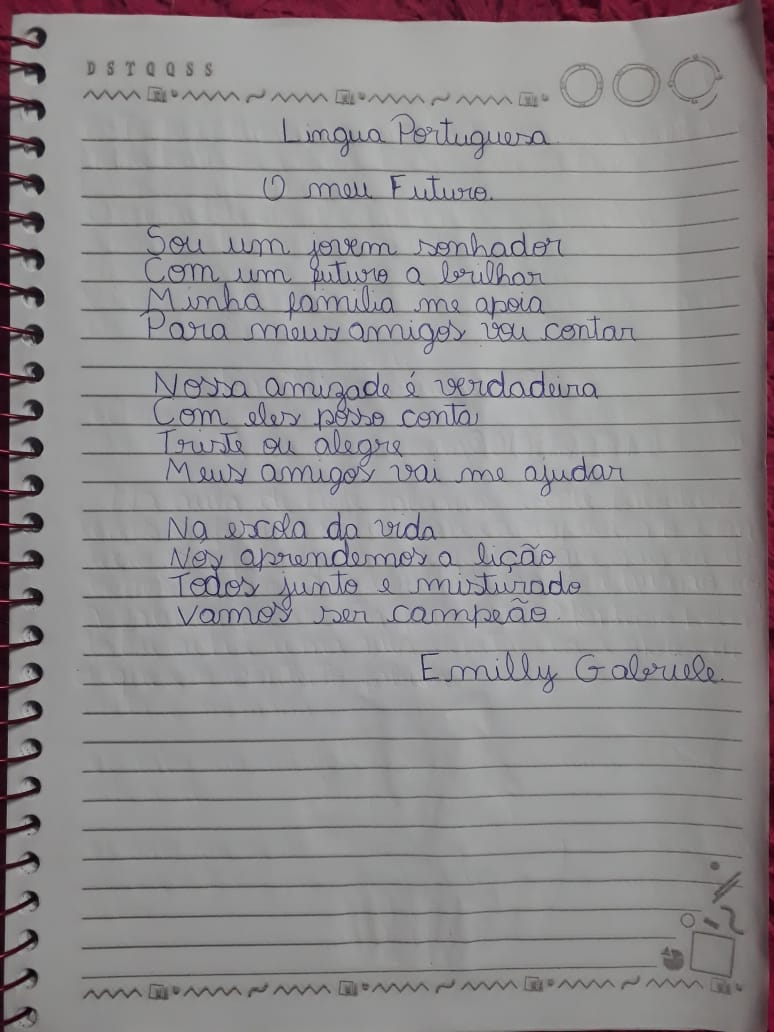 D S T Q Q S S
Lingua Portuguesa
O meu Futuro.
Sou um jovem sonhador
Com um futuro a brilhar
Minha familia me apoia
Para meus amigos vou contar
Nossa amizade é verdadeira
Com eles posso conta
Triste ou alegre
Meus amigos vai me ajudar
Na escola da vida
Nós aprendemos a lição
Todos junto e misturado
Vamos ser campeão.
Emilly Gabriele.